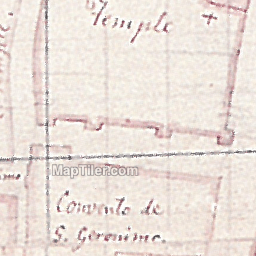 Temple
MapTiler.com
Convento de
S. Geronimo.